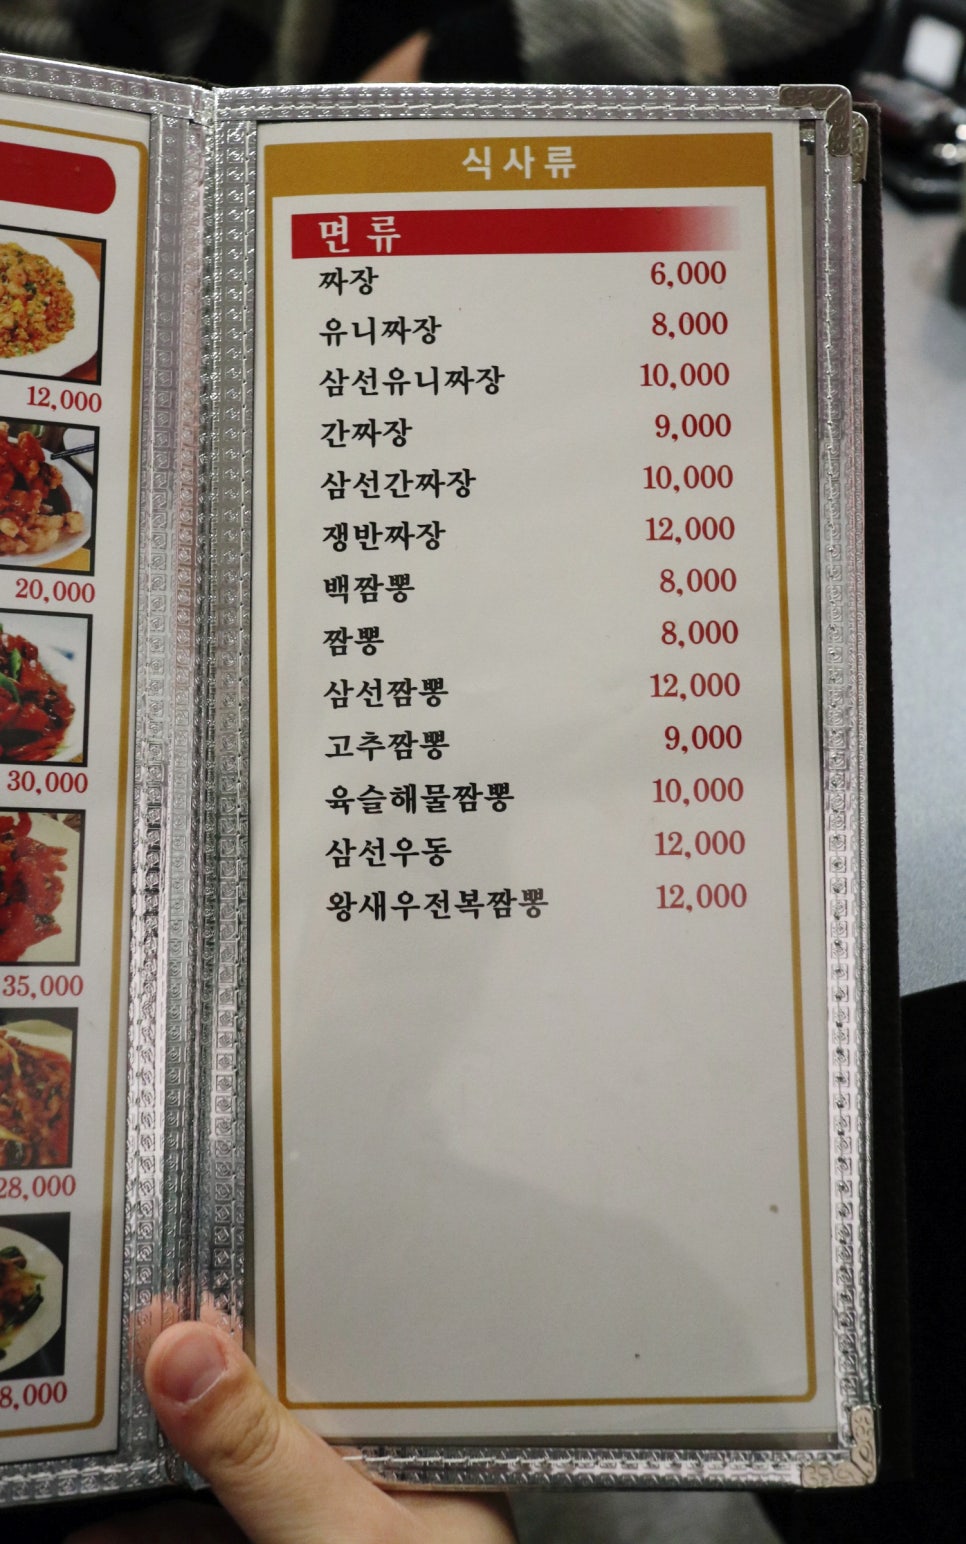 12,000
20,000
30,000
35,000
28,000
8,000
식사류
면류
짜장 6,000
유니짜장 8,000
삼선유니짜장 10,000
간짜장 9,000
삼선간짜장 10,000
쟁반짜장 12,000
백짬뽕 8,000
짬뽕 8,000
삼선짬뽕 12,000
고추짬뽕 9,000
육슬해물짬뽕 10,000
삼선우동 12,000
왕새우전복짬뽕 12,000